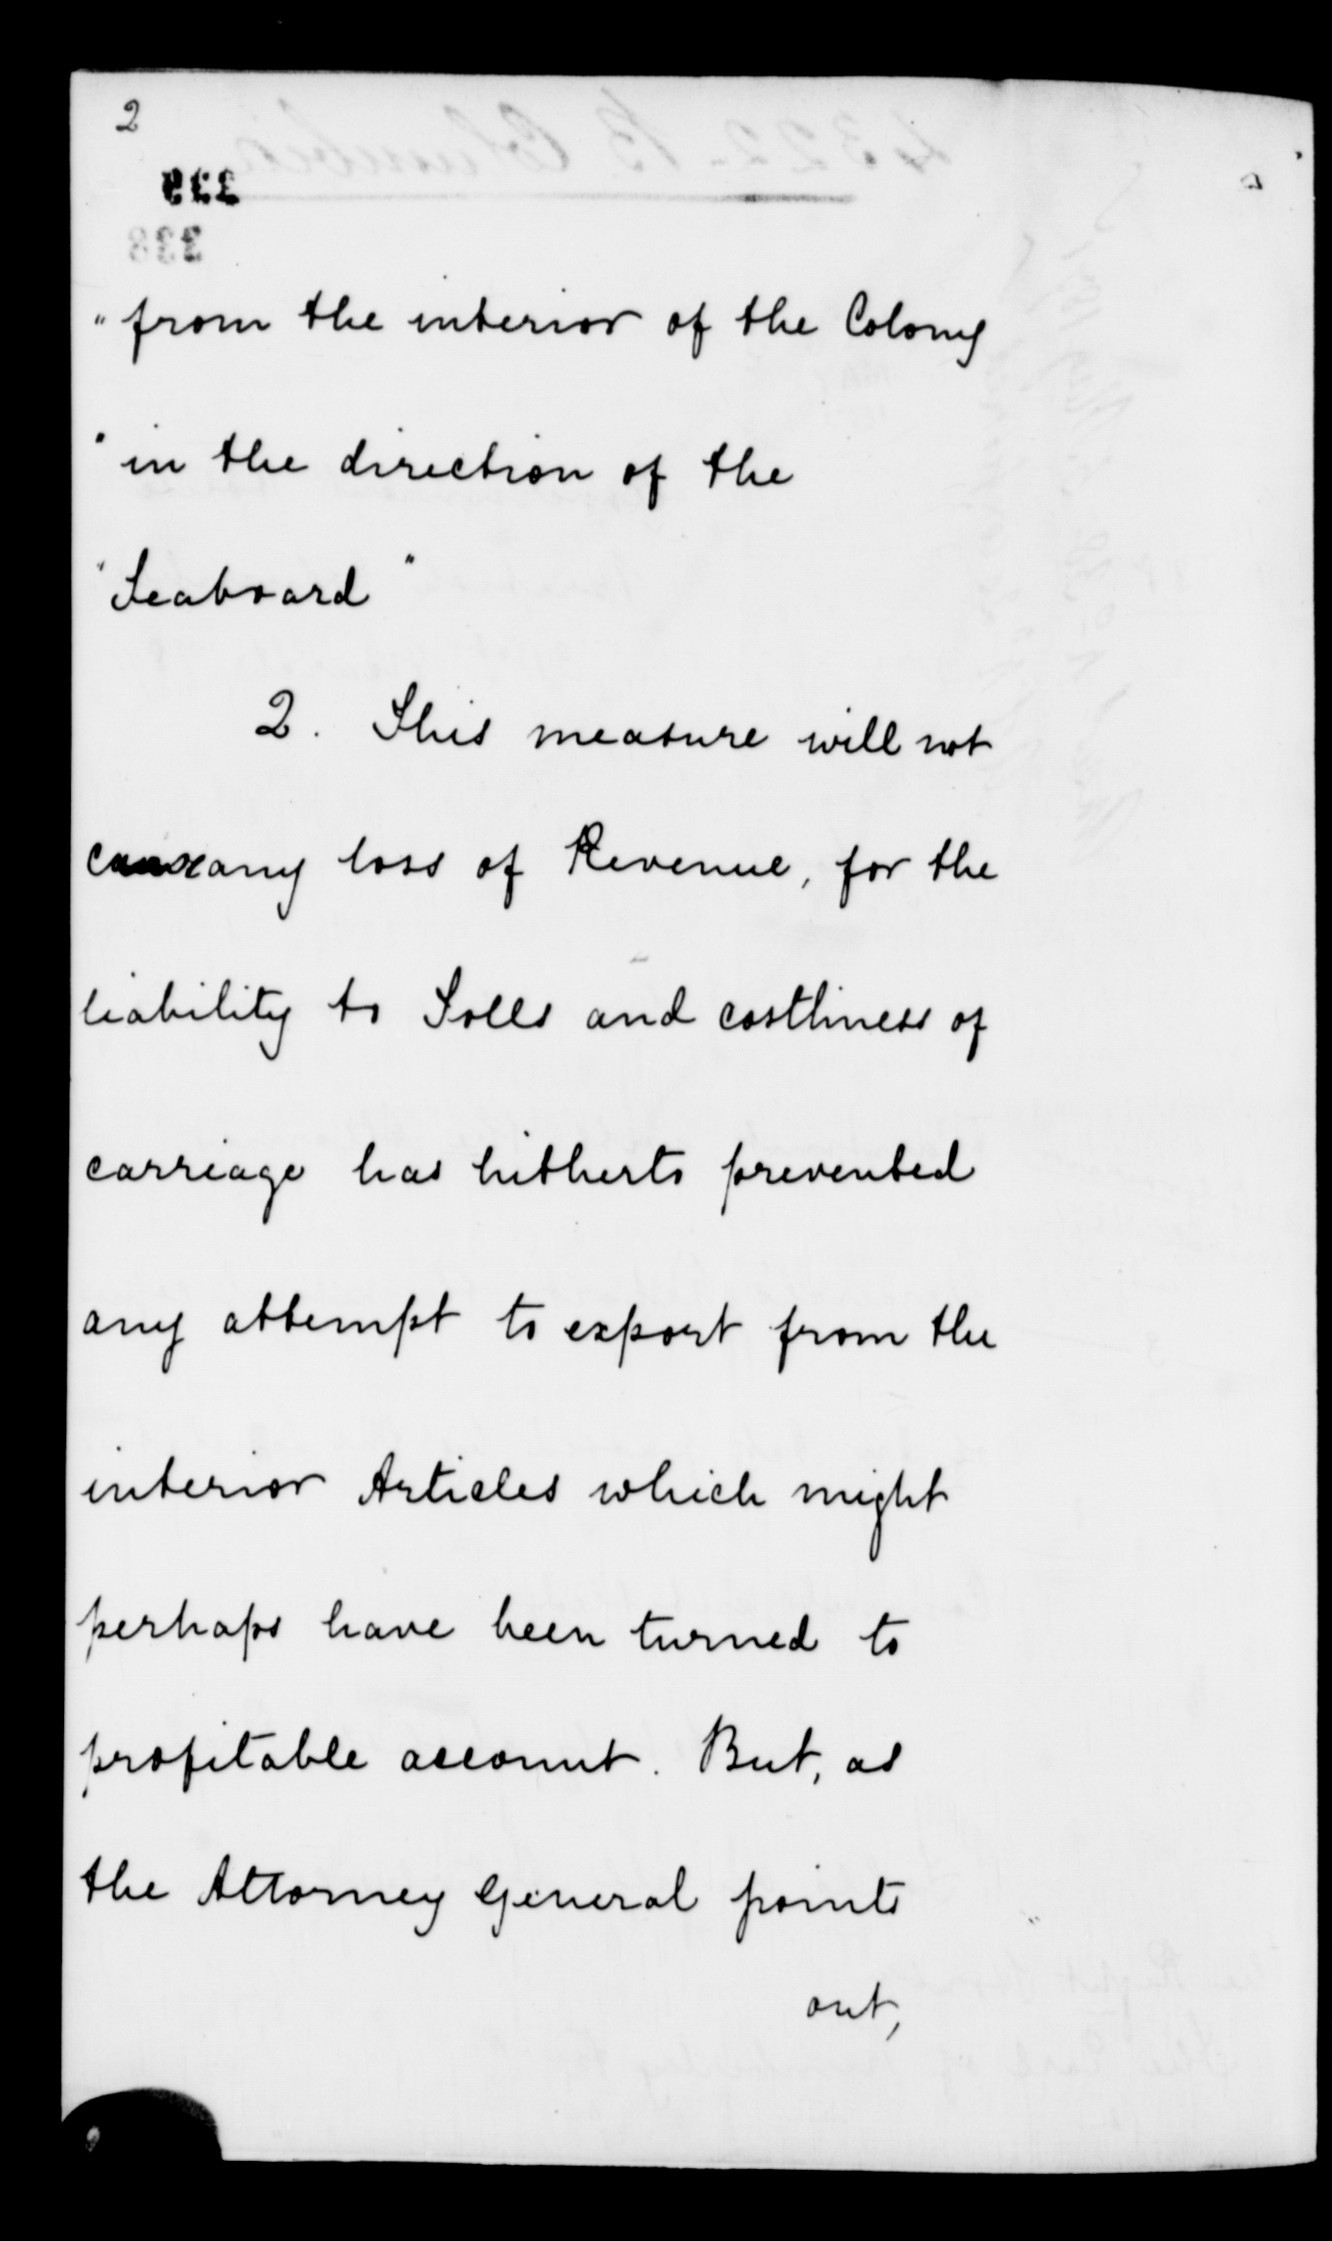 2
339
338
"from the interior of the Colony
"in the direction of the
"Seaboard"
2. This measure will not
cause any loss of Revenue, for the
liability to Tolls and costliness of
carriage has hitherto prevented
any attempt to export from the
interior Articles which might
perhaps have been turned to
profitable account. But, as
the Attorney General points
out,